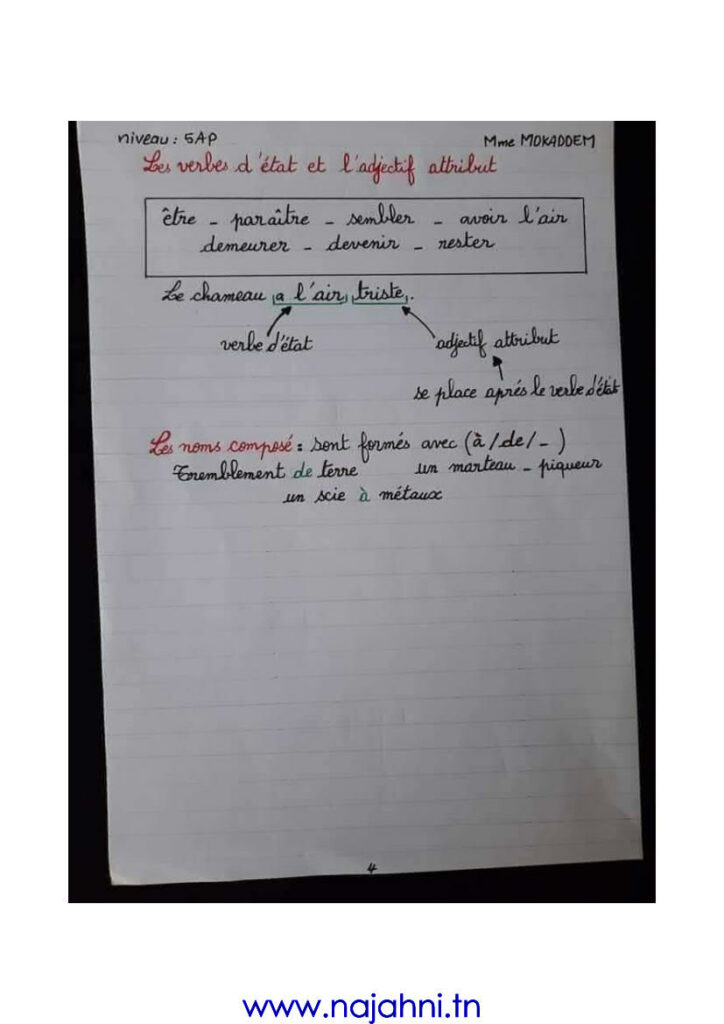 niveau : 5AP
Mme MOKADDEM
Les verbes d'état et l'adjectif attribut
être - paraître - sembler - avoir l'air
demeurer - devenir - rester
Le chameau a l'air triste.
verbe d'état
adjectif attribut
se place aprés le verbe d'état
Les noms composé : sont formés avec (à/de/-)
Tremblement de terre un marteau - piqueur
un scie à métaux
4
www.najahni.tn